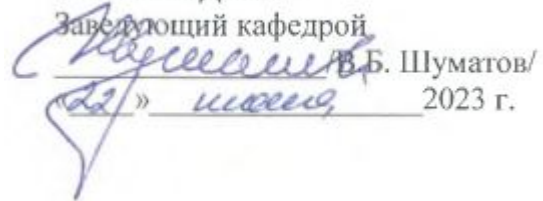 Заведующий кафедрой
/В.Б. Шуматов/
«22» 2023 г.